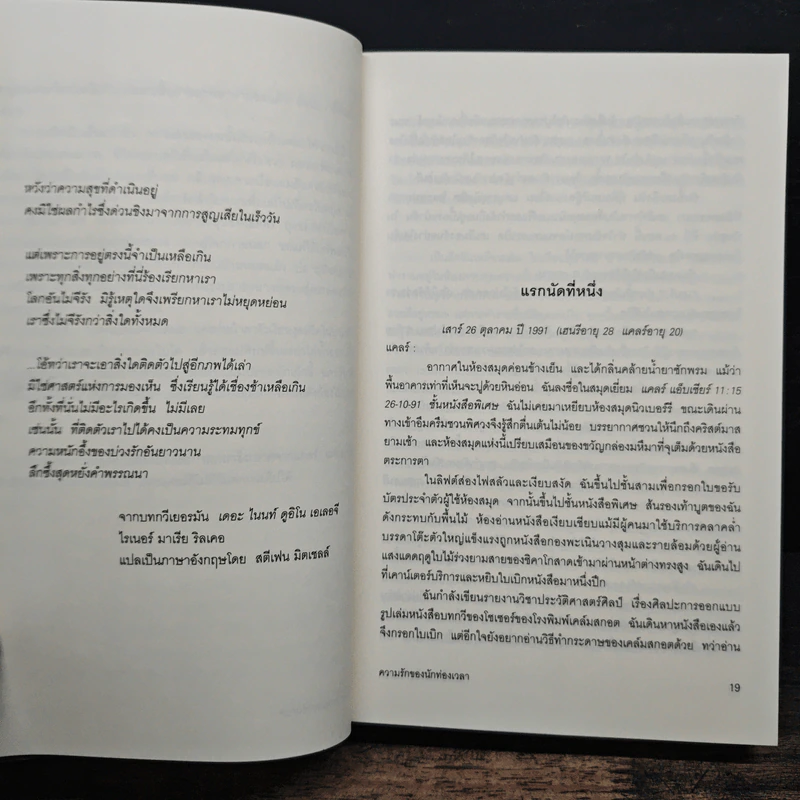 หวังว่าความสุขที่ดำเนินอยู่
คงมิใช่ผลกำไรซึ่งด่วนชิงมาจากการสูญเสียในเร็ววัน
แต่เพราะการอยู่ตรงนี้จำเป็นเหลือเกิน
เพราะทุกสิ่งทุกอย่างที่นี่ร้องเรียกหาเรา
โลกอันไม่จีรัง มิรู้เหตุใดจึงเพรียกหาเราไม่หยุดหย่อน
เราซึ่งไม่จีรังกว่าสิ่งใดทั้งหมด
...โอ้ทว่าเราจะเอาสิ่งใดติดตัวไปสู่อีกภพได้เล่า
มิใช่ศาสตร์แห่งการมองเห็น ซึ่งเรียนรู้ได้เชื่องช้าเหลือเกิน
อีกทั้งที่นั่นไม่มีอะไรเกิดขึ้น ไม่มีเลย
เช่นนั้น ที่ติดตัวเราไปได้คงเป็นความระทมทุกข์
ความหนักอึ้งของบ่วงรักอันยาวนาน
ลึกซึ้งสุดหยั่งคำพรรณนา
จากบทกวีเยอรมัน เดอะ ไนนท์ ดูอิโน เอเลอจี
ไรเนอร์ มาเรีย ริลเคอ
แปลเป็นภาษาอังกฤษโดย สตีเฟน มิตเชลล์
แรกนัดที่หนึ่ง
เสาร์ 26 ตุลาคม ปี 1991 (เฮนรีอายุ 28 แคลร์อายุ 20)
แคลร์ :
อากาศในห้องสมุดค่อนข้างเย็น และได้กลิ่นคล้ายน้ำยาซักพรม แม้ว่า
พื้นอาคารเท่าที่เห็นจะปูด้วยหินอ่อน ฉันลงชื่อในสมุดเยี่ยม แคลร์ แอ็บเชียร์ 11:15
26-10-91 ชั้นหนังสือพิเศษ ฉันไม่เคยมาเหยียบห้องสมุดนิวเบอร์รี ขณะเดินผ่าน
ทางเข้าอึมครึมชวนพิศวงจึงรู้สึกตื่นเต้นไม่น้อย บรรยากาศชวนให้นึกถึงคริสต์มาส
ยามเช้า และห้องสมุดแห่งนี้เปรียบเสมือนของขวัญกล่องมหึมาที่จุเต็มด้วยหนังสือ
ตระการตา
ในลิฟต์ส่องไฟสลัวและเงียบสงัด ฉันขึ้นไปชั้นสามเพื่อกรอกใบขอรับ
บัตรประจำตัวผู้ใช้ห้องสมุด จากนั้นขึ้นไปชั้นหนังสือพิเศษ ส้นรองเท้าบูตของฉัน
ดังกระทบกับพื้นไม้ ห้องอ่านหนังสือเงียบเชียบแม้มีผู้คนมาใช้บริการคลาคล่ำ
บรรดาโต๊ะตัวใหญ่แข็งแรงถูกหนังสือกองพะเนินวางสุมและรายล้อมด้วยผู้อ่าน
แสงแดดฤดูใบไม้ร่วงยามสายของชิคาโกสาดเข้ามาผ่านหน้าต่างทรงสูง ฉันเดินไป
ที่เคาน์เตอร์บริการและหยิบใบเบิกหนังสือมาหนึ่งปึก
ฉันกำลังเขียนรายงานวิชาประวัติศาสตร์ศิลป์ เรื่องศิลปะการออกแบบ
รูปเล่มหนังสือบทกวีของโชเซอร์ของโรงพิมพ์เคล์มสกอต ฉันเดินหาหนังสือเองแล้ว
จึงกรอกใบเบิก แต่อีกใจยังอยากอ่านวิธีทำกระดาษของเคล์มสกอตด้วย ทว่าอ่าน
ความรักของนักท่องเวลา
19